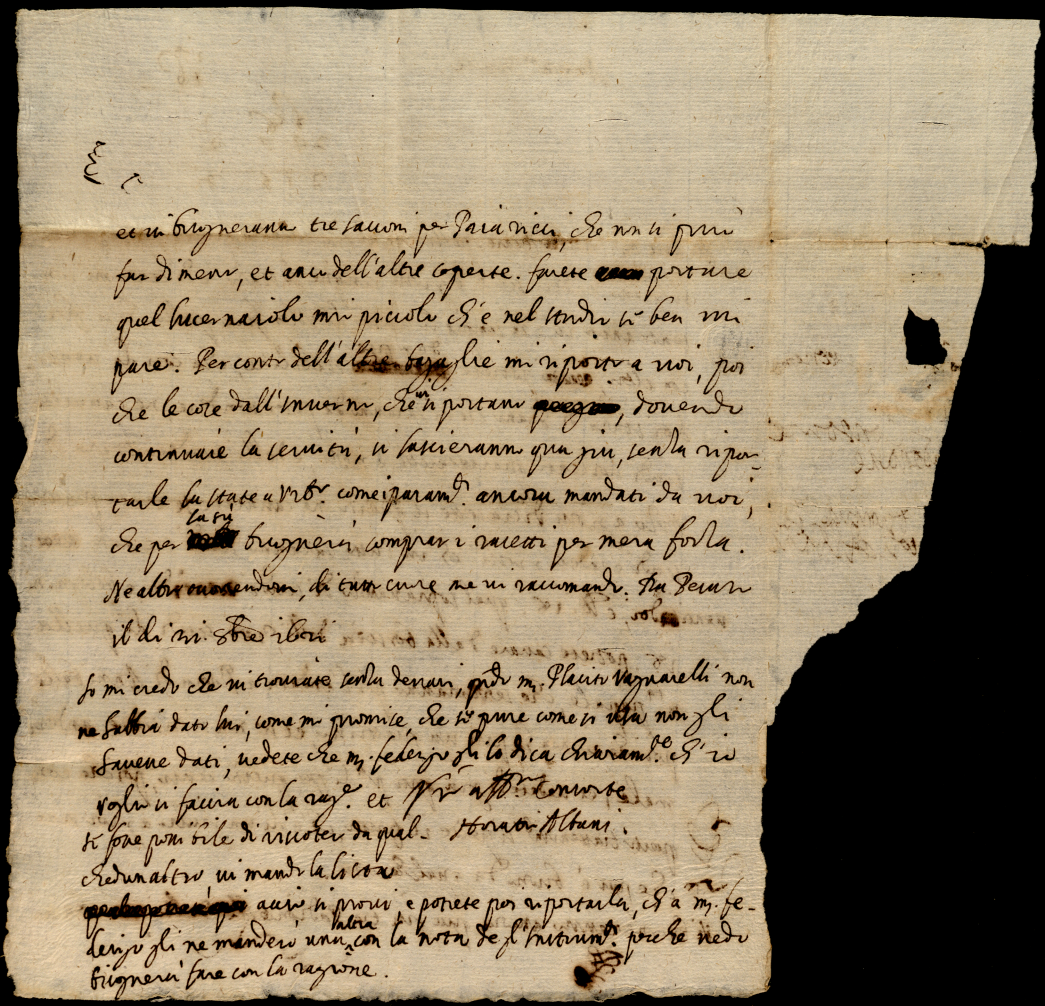 et vi bisognerano tre sacconi per Paiaricci, che non si può
far di meno, et anco dell'altre coperte. farete portare
quel lucernaiolo mio piccolo ch'è nel studio se ben mi
pare. Per conto dell'altre bagaglie mi riporto a voi, poi
che le cose dall'Inverno, che vi si portano, dovendo
continuare la servitù, si lascieranno qua giù, senza ripor-
tarle la state a Urb.o come i param.ti ancora mandati da voi,
che per la sù bisognerà comprar i racetti per mera forza.
Ne altro occorrendomi, di tutto cuore me vi raccomando. Da Pesaro
il di
Io mi credo che vi troviate senza denari, q.do m. Placito Vagnarelli non
ne habbia dato lui, come mi promise, che se pure come si usa non gli
havene dati, vedete che m. federigo gli lo dica chiaram.te ch'io
voglio si faccia con la rag.e et V.ro aff.mo Consorte
se fosse possibile di riscoter da qual- Horatio Albani.
chedun altro, vi mando la lista
acciò si provi, e potrete poi riportarla, ch'a m. fe-
derigo gli ne manderò una altra con la nota degl'Instrum.ti perche vedo
bisognerà fare con la ragione.